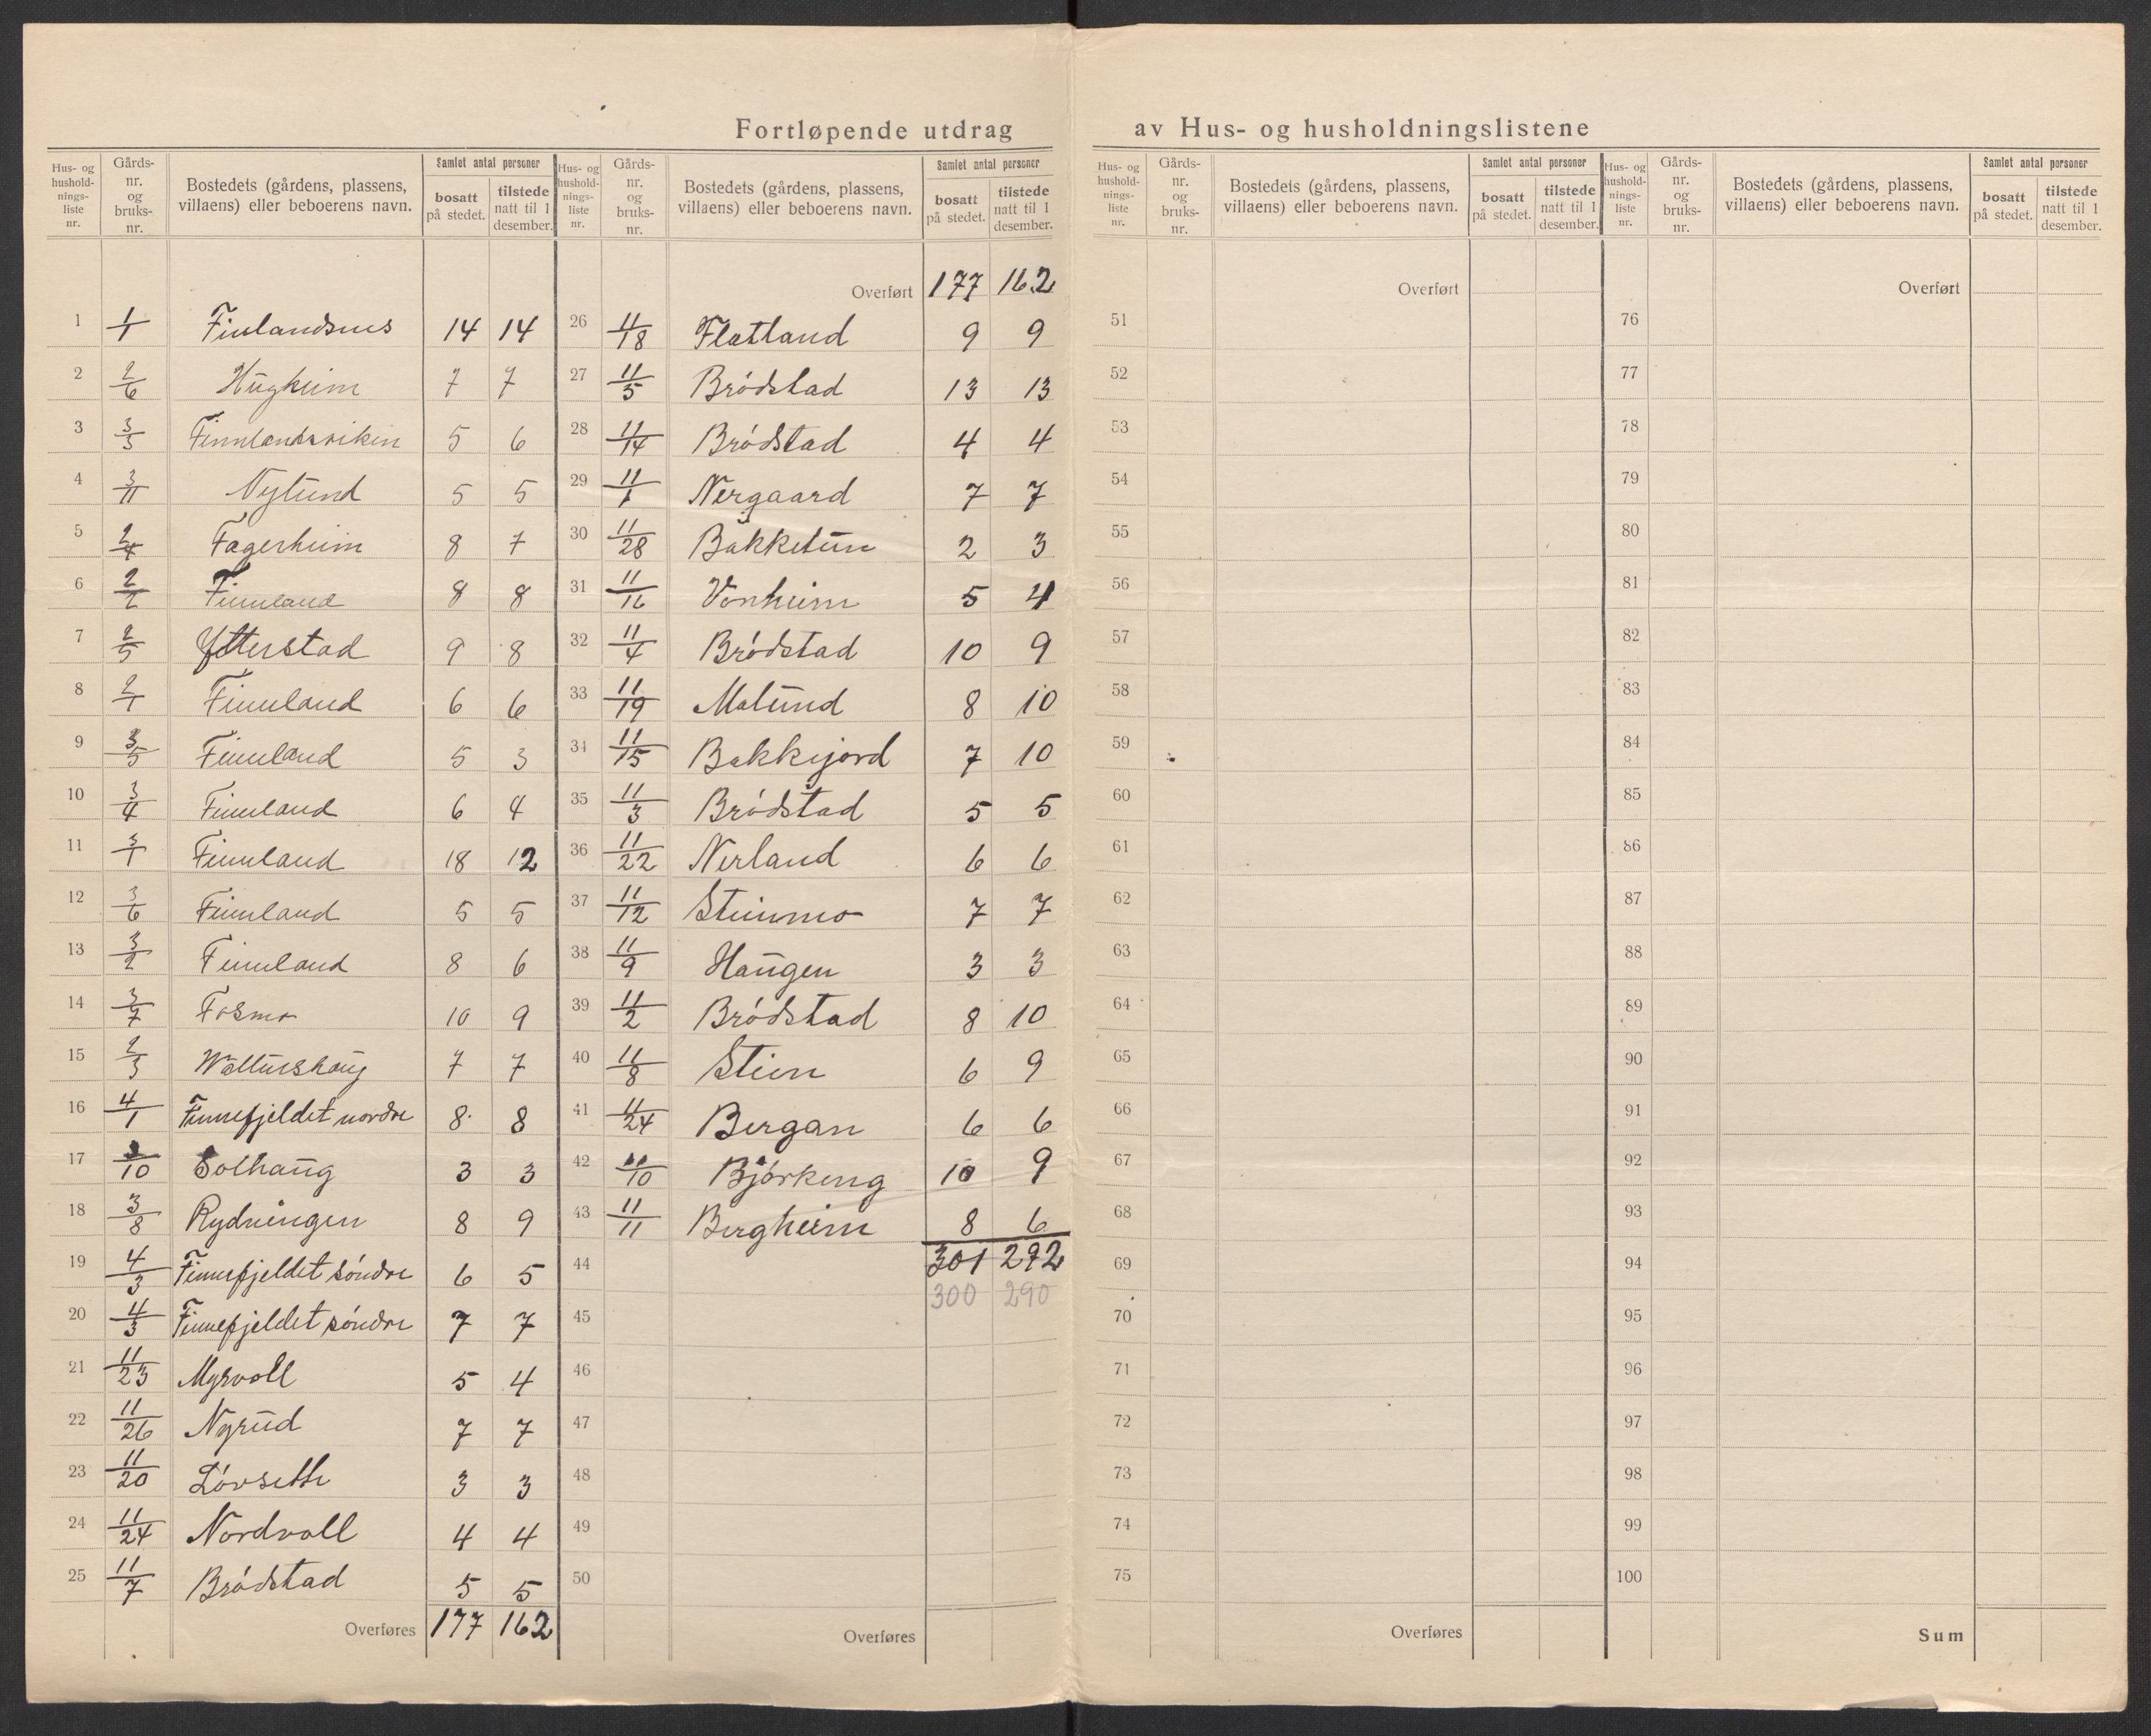 Fortløpende utdrag av Hus- og husholdningslistene
Hus- og hushold-nings-liste nr. | Gårds-nr. og bruks-nr. | Bostedets (gårdens, plassens, villaens) eller beboerens navn. | Samlet antal personer bosatt på stedet. | tilstede natt til 1 desember.
1 1/1 Finlandsnes 14 14
2 2/6 Haugheim 7 7
3 3/3 Finnlandsviken 5 6
4 3/11 Nylund 5 5
5 2/4 Fagerheim 8 7
6 2/2 Finnland 8 8
7 2/5 Ytterstad 9 8
8 2/1 Finnland 6 6
9 3/5 Finnland 5 3
10 3/4 Finnland 6 4
11 3/1 Finnland 18 12
12 3/6 Finnland 5 5
13 3/2 Finnland 8 6
14 3/7 Fosmo 10 9
15 2/3 7 7
16 4/1 Finnefjeldet nordre 8 8
17 3/10 Solhaug 3 3
18 3/8 Rydningen 8 9
19 4/3 Finnefjeldet söndre 6 5
20 4/3 Finnefjeldet söndre 7 7
21 11/23 Myrvoll 5 4
22 11/26 Nyrud 7 7
23 11/20 Lövsette 3 3
24 11/24 Nordvoll 4 4
25 11/7 Brödstad 5 5
Overføres 177 162
Hus- og hushold-nings-liste nr. | Gårds-nr. og bruks-nr. | Bostedets (gårdens, plassens, villaens) eller beboerens navn. | Samlet antal personer bosatt på stedet. | tilstede natt til 1 desember.
Overført 177 162
26 11/18 Flatland 9 9
27 11/5 Brödstad 13 13
28 11/14 Brödstad 4 4
29 11/1 Nergaard 7 7
30 11/28 Bakketun 2 3
31 11/16 Vonheim 5 4
32 11/4 Brödstad 10 9
33 11/19 Molund 8 10
34 11/15 Bakkejord 7 10
35 11/3 Brödstad 5 5
36 11/22 Nerland 6 6
37 11/12 Steinmo 7 7
38 11/9 Haugen 3 3
39 11/2 Brödstad 8 10
40 11/8 Stein 6 9
41 11/24 Bergan 6 6
42 11/10 Björkeng 10 9
43 11/11 Bergheim 8 6
44 301 292
300 290
45
46
47
48
49
50
Overføres
Hus- og hushold-nings-liste nr. | Gårds-nr. og bruks-nr. | Bostedets (gårdens, plassens, villaens) eller beboerens navn. | Samlet antal personer bosatt på stedet. | tilstede natt til 1 desember.
Overført
51
52
53
54
55
56
57
58
59
60
61
62
63
64
65
66
67
68
69
70
71
72
73
74
75
Overføres
Hus- og hushold-nings-liste nr. | Gårds-nr. og bruks-nr. | Bostedets (gårdens, plassens, villaens) eller beboerens navn. | Samlet antal personer bosatt på stedet. | tilstede natt til 1 desember.
Overført
76
77
78
79
80
81
82
83
84
85
86
87
88
89
90
91
92
93
94
95
96
97
98
99
100
Sum